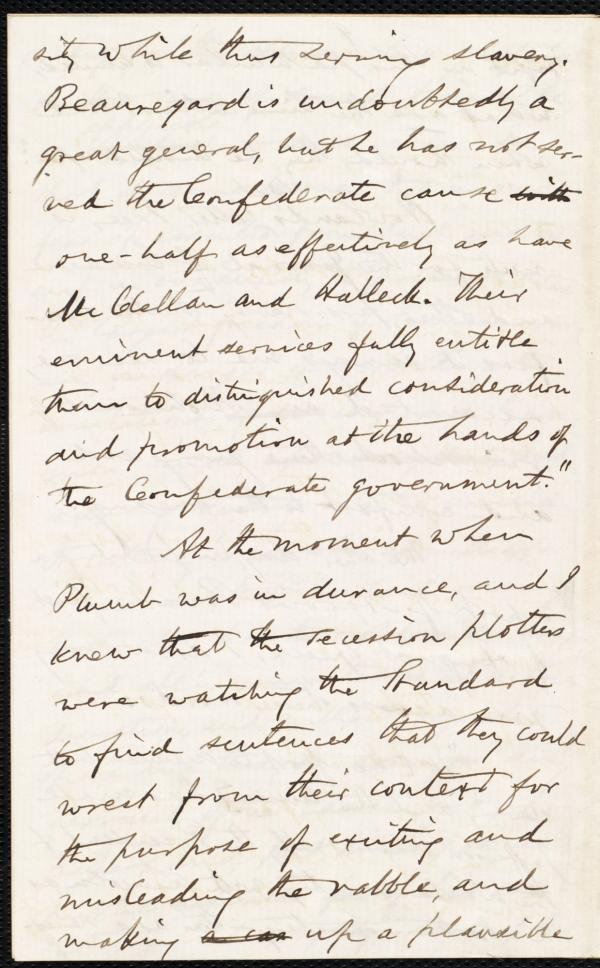 sity while thus serving slavery.
Beauregard is undoubtedly a
great general, but he has not ser-
ved the Confederate cause with
one-half as effectively as have
McClellan and Halleck. Their
eminent services fully entitle
them to distinguished consideration
and promotion at the hands of
the Confederate government."
At the moment when
Plumb was in durance, and I
knew that the secession plotters
were watching the Standard
to find sentences that they could
wrest from their context for
the purpose of exciting and
misleading the rabble, and
making a cas up a plausible